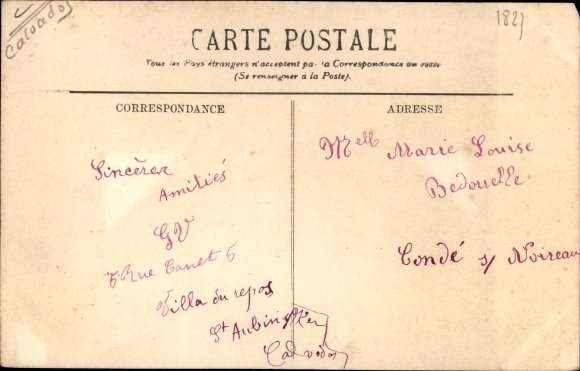 Calvados
1827
CARTE POSTALE
Tous les Pays étrangers n'acceptent pas la Correspondance au recto
(Se renseigner à la Poste).
CORRESPONDANCE
ADRESSE
Sincères
Amitiés
GV
5 Rue Canet 5
Villa du repos
St Aubin s/ Mer
Calvados
Melle Marie Louise
Bedouelle
Condé s/ Noireau